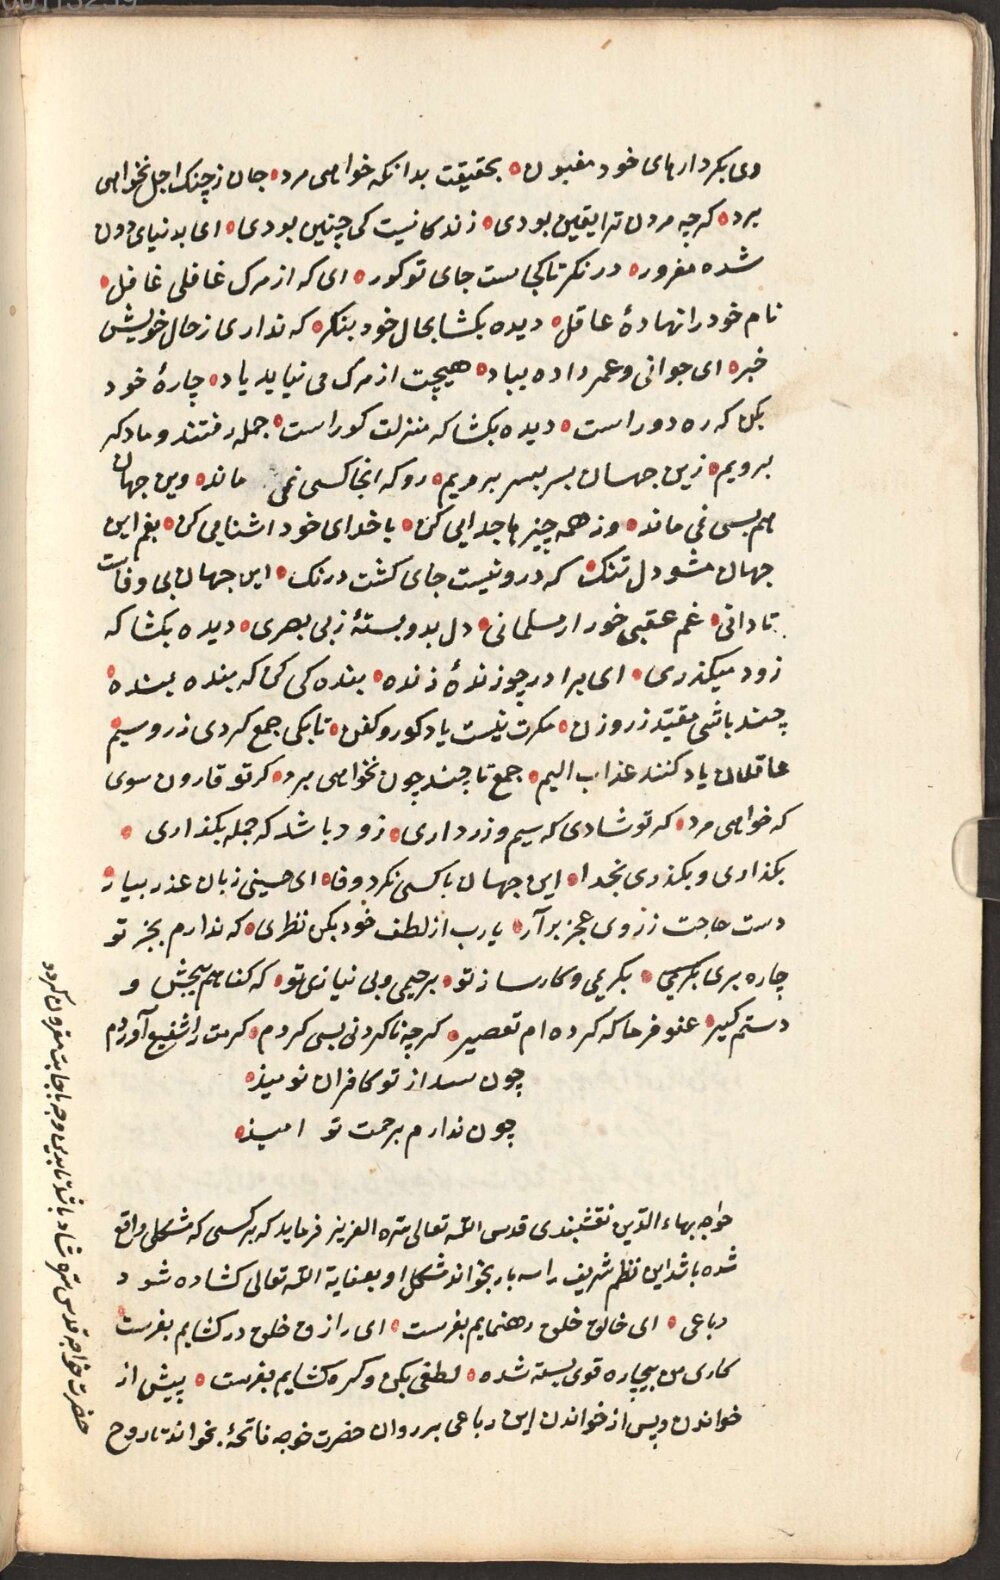 وی بکردارهای خود مغبون • بحقیقت بدانکه خواهی مرد • جان ز چنک اجل نخواهی
برد • کرچه مردن ترا یقین بودی • زندکانیت کی چنین بودی • ای بدنیای دون
شده مغرور • درنکر تا کجاست جای تو کور • ای که از مرک غافلی غافل •
نام خود را نهادهٔ عاقل • دیده بکشا بحال خود بنکر • که نداری ز حال خویش
خبر • ای جوانی و عمر داده بباد • هیچت از مرک می نیاید یاد • چارهٔ خود
بکن که ره دور است • دیده بکشا که منزلت کور است • جمله رفتند و ما دکر
برویم • زین جهان سر بسر بدر ویم • رو که انجا کسی نمی ماند • وین جهان
هم بسی نمی ماند • وز همه چیزها جدایی کن • با خدای خود اشنایی کن • بغم این
جهان مشو دل تنک • که درو نیست جای کشت درنک • این جهان بی وفاست
تا دانی • غم عقبی خور ار مسلمانی • دل بدو بستهٔ ز بی بصری • دیده بکشا که
زود میکذری • ای برادر چو زندهٔ زنده • بنده کی کن که بنده بنده •
چند باشی مقید زر و زن • مکرت نیست یاد کور و کفن • تا بکی جمع کردی زر و سیم •
عاقلان یاد کنند عذاب الیم • جمع تا چند چون نخواهی برد • کر تو قارون سوی
که خواهی مرد • که تو شادی که سیم و زر داری • زود باشد که جمله بکذاری •
بکذاری و بکذری بخدا • این جهان با کسی نکرد وفا • ای حسینی زبان عذر بیار •
دست حاجت ز روی عجز برآر • یارب از لطف خود بکن نظری • که ندارم بجز تو
چاره بری • بکریمی و کارساز تو • برحیمی و بی نیازی تو • که کناهم ببخش و
دستم کیر • عفو فرما که کرده ام تقصیر • کرچه ناکردنی بسی کردم • کرمت را شفیع آوردم
چون از تو کافران نومید •
چون ندارم برحمت تو امید •
خواجه بهاء الدین نقشبندی قدس الله تعالی سره العزیز فرماید که هر کسی که مشکلی واقع
شده باشد این نظم شریف را سه بار بخواند مشکل او بعنایة الله تعالی کشاده شود
رباعی • ای خالق خلق رهنمایم بفرست • ای رازق خلق در کشایم بفرست •
کاری من بیچاره قوی بسته شده • لطفی بکن و کره کشایم بفرست • پیش از
خواندن و پس از خواندن این رباعی بر روان حضرت خوجه فاتحهٔ بخواند تا روح
حضرت خواجه قدس سره شاد باشد تا بدین وجه باجابت مقرون کردد